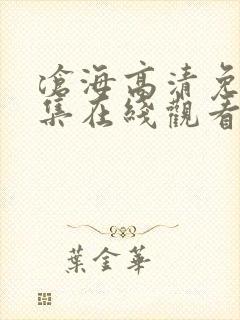 滄海高清免
集在綫觀看
葉金華